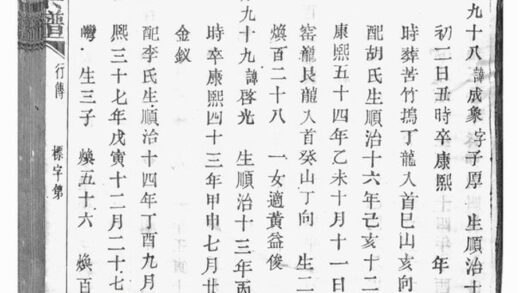 九十八 諱成象 字子厚 生順治十
初二日丑時卒康熙 年
時葬苦竹塢丁龍入首巳山亥向
配胡氏生順治十六年己亥十二
康熙五十四年乙未十月十一日
窰龍艮龍入首癸山丁向 生二
煥百二十八 一女適黃益俊
九十九 諱啓光 生順治十三年丙
時卒康熙四十三年甲申七月廿
金釵
配李氏生順治十四年丁酉九月
熙三十七年戊寅十二月二十七
灣 生三子 煥五十六 煥百
譜
行傳 標字第